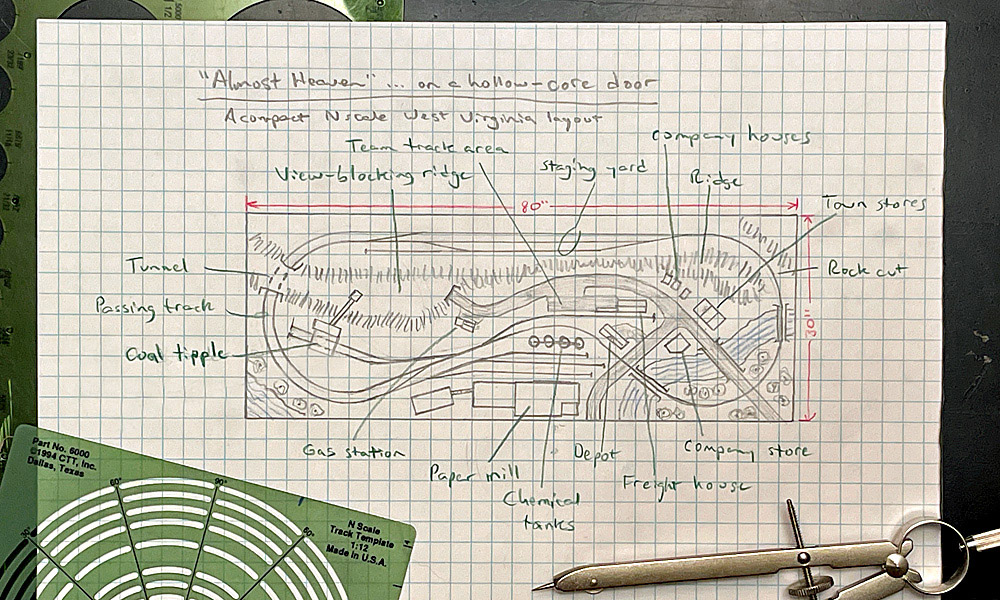 "Almost Heaven" ... on a hollow-core door
A compact N scale West Virginia layout
Team track area
staging yard
company houses
View-blocking ridge
Ridge
Town stores
80"
Tunnel
Rock cut
Passing track
30"
Coal tipple
Gas station
Paper mill
Depot
Company store
Chemical
tanks
Freight house
Part No. 6000
©1994 CTT, Inc.
Dallas, Texas
60°
90°
N Scale
Track Template
1:12
Made in U.S.A.